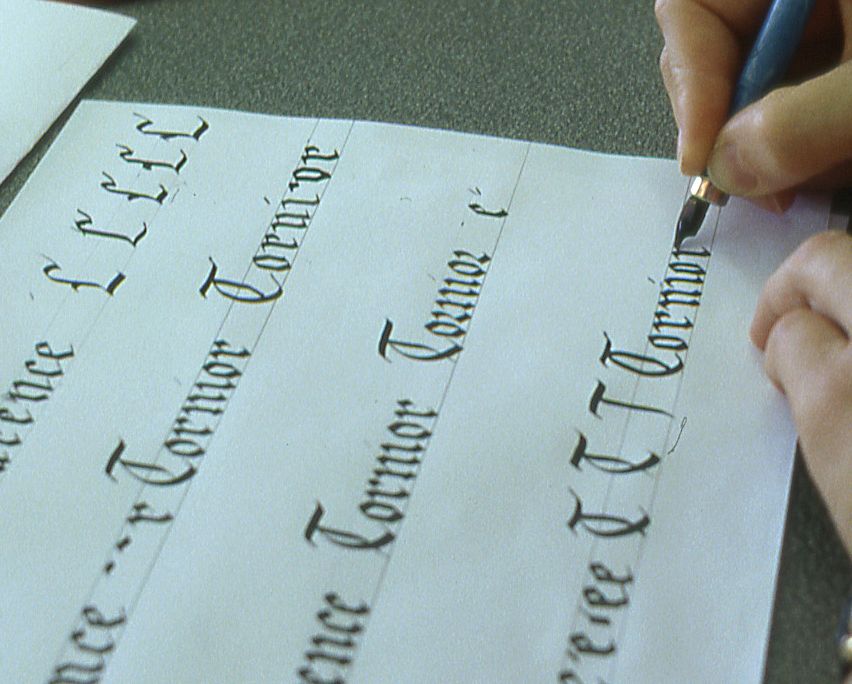 cence L L L L L
nce r Tormor Tornivor
ence Tormor Tormor e
e e ee T T T Tormor